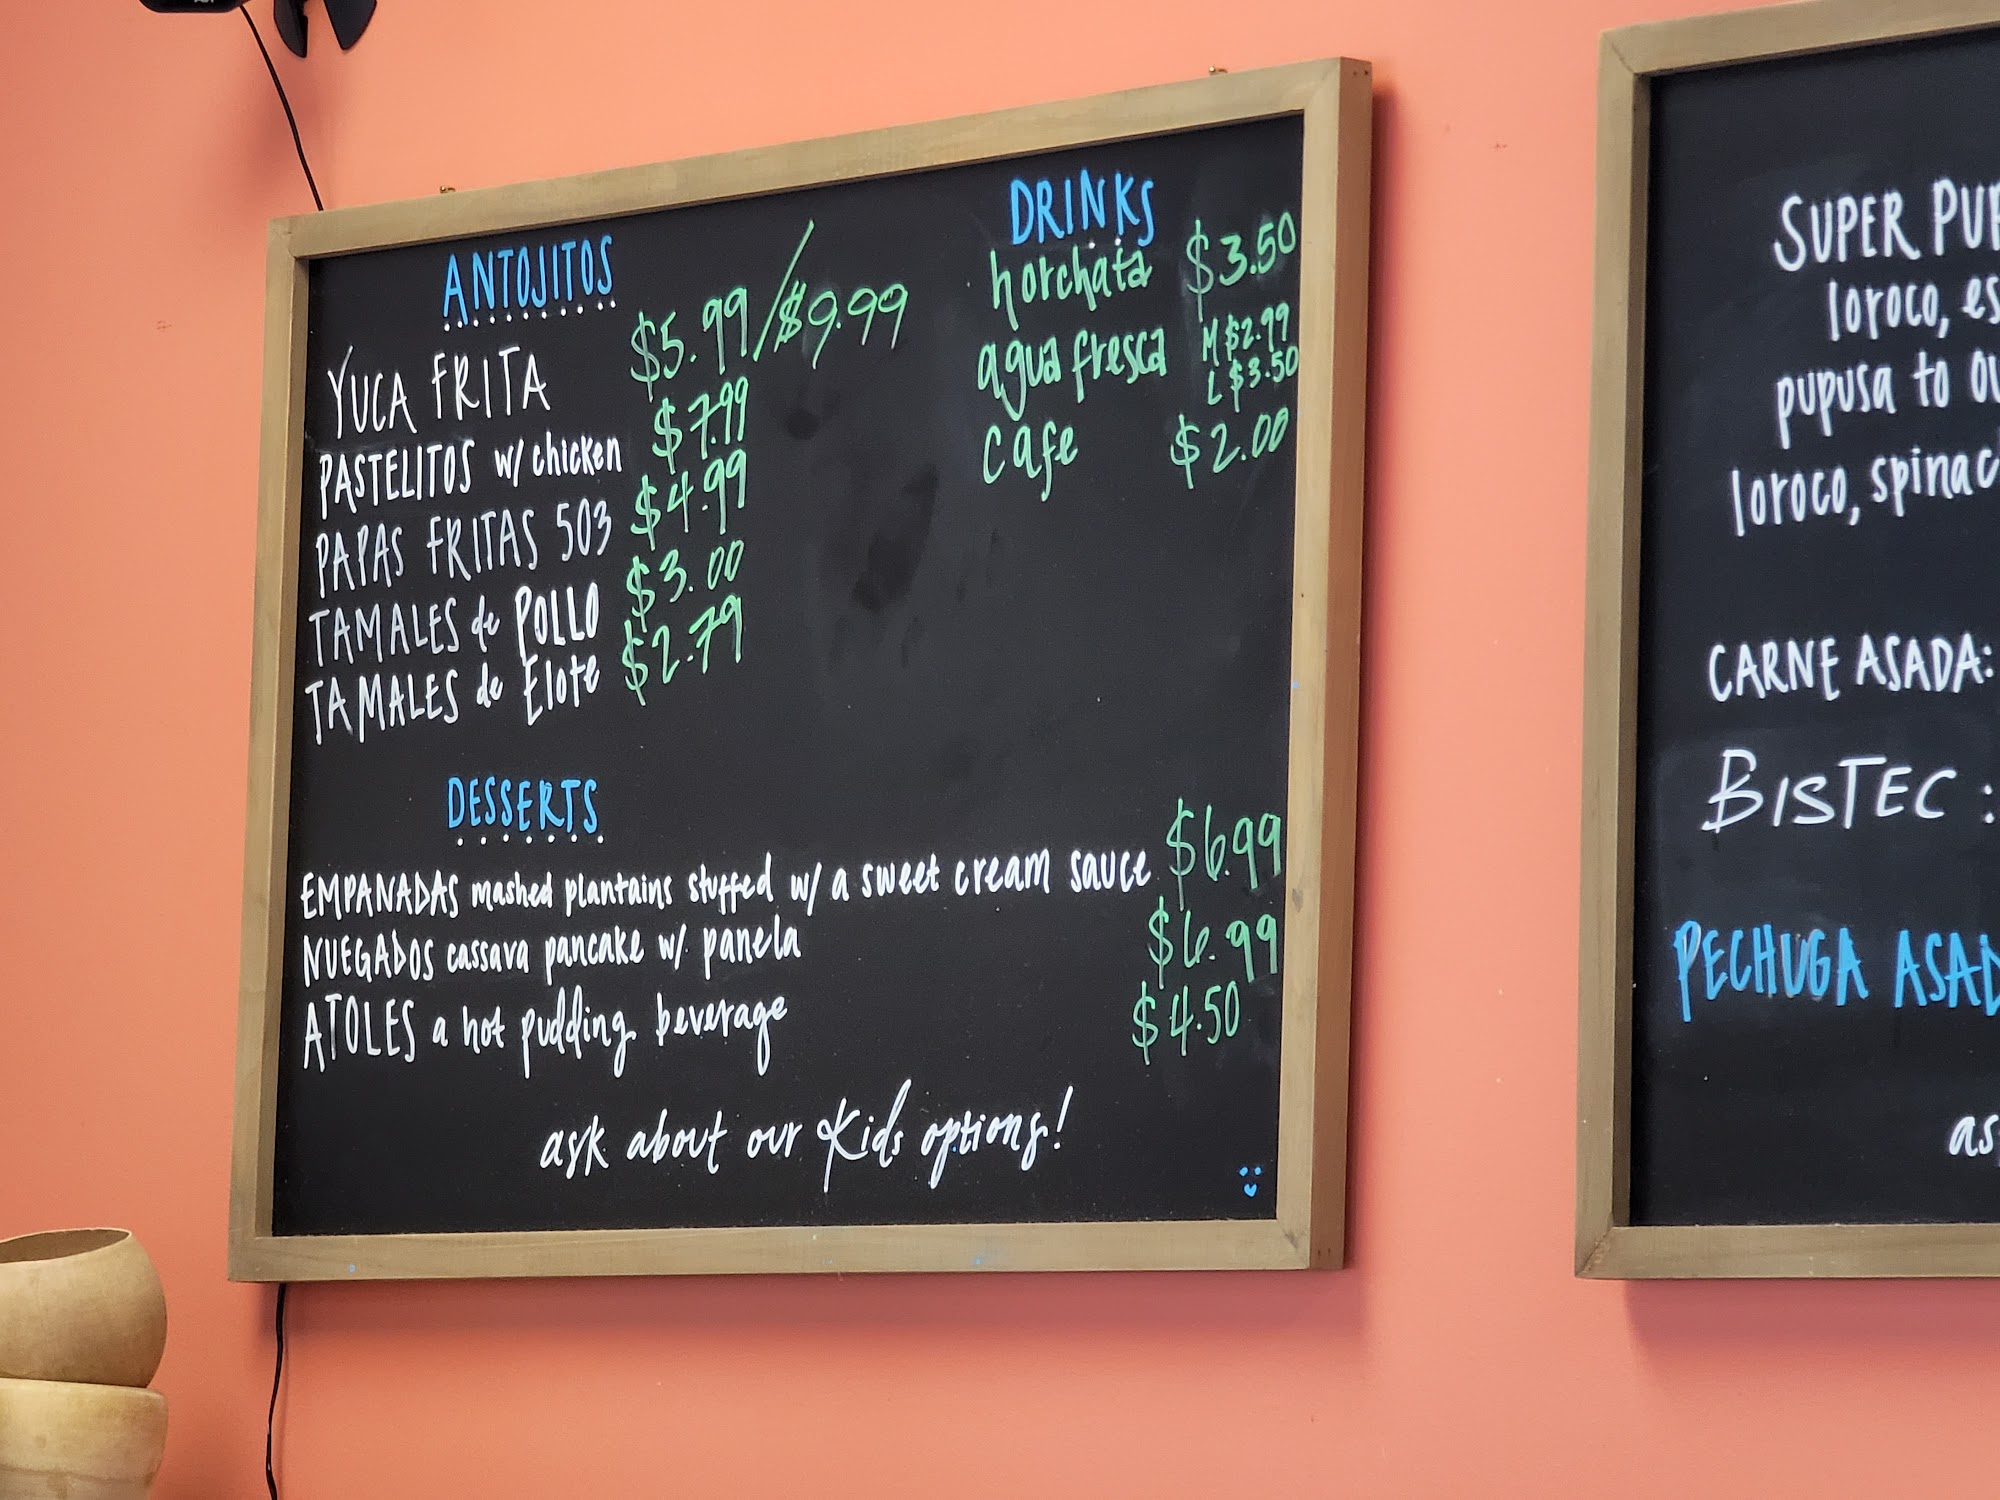 ANTOJITOS
YUCA FRITA $5.99/$9.99
PASTELITOS w/ chicken $7.99
PAPAS FRITAS 503 $4.99
TAMALES de POLLO $3.00
TAMALES de Elote $2.79
DRINKS
horchata $3.50
agua fresca M $2.99
L $3.50
cafe $2.00
DESSERTS
EMPANADAS mashed plantains stuffed w/ a sweet cream sauce $6.99
NUEGADOS cassava pancake w/ panela $6.99
ATOLES a hot pudding beverage $4.50
ask about our Kids options!
SUPER PUP
loroco, es
pupusa to ou
loroco, spinac
CARNE ASADA:
BISTEC :
PECHUGA ASAD
as